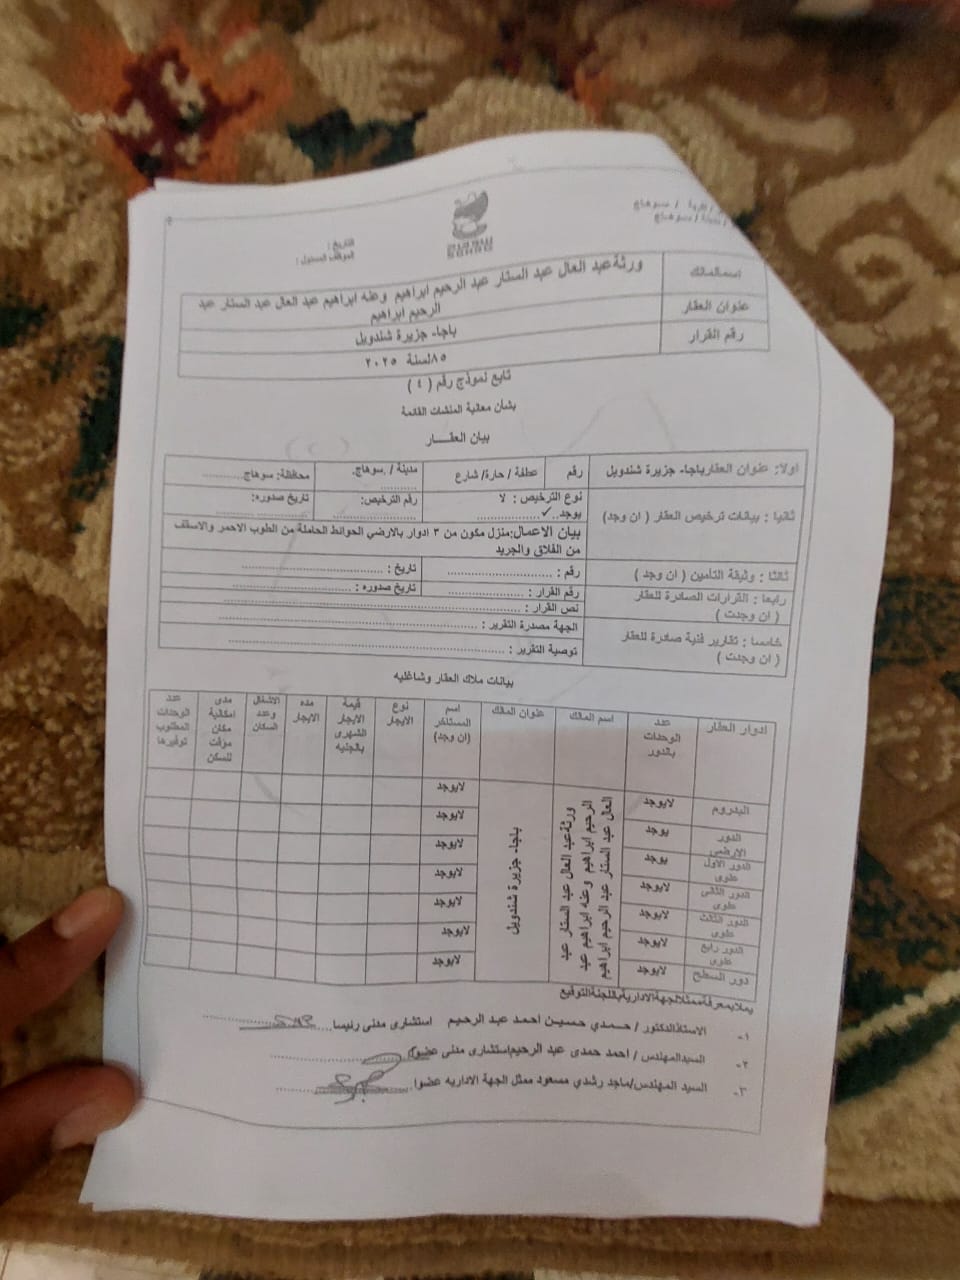 / قرية / سوهاج
/ مدينة / سوهاج
التاريخ :
الموظف المسئول :
اسم المالك
ورثة عبد العال عبد الستار عبد الرحيم ابراهيم وعنه ابراهيم عبد العال عبد الستار عبد
الرحيم ابراهيم
عنوان العقار
باجا- جزيرة شندويل
رقم القرار
٨٥ لسنة ٢٠٢٥
تابع نموذج رقم ( ٤ )
بشأن معاينة المنشات القائمة
بيان العقــــار
اولا: عنوان العقار باجا- جزيرة شندويل
رقم
عطفة / حارة/ شارع
مدينة / .سوهاج.
..........
محافظة: سوهاج............
ثانيا : بيانات ترخيص العقار ( ان وجد)
نوع الترخيص : لا
يوجد..✓..................
رقم الترخيص:
......................
تاريخ صدوره:
..................
بيان الاعمال:منزل مكون من ٣ ادوار بالارضي الحوائط الحاملة من الطوب الاحمر والاسقف
من الفلاق والجريد
ثالثا : وثيقة التأمين ( ان وجد )
رقم : ............................
تاريخ : ......................................
رابعا : القرارات الصادرة للعقار
( ان وجدت )
رقم القرار : ....................
تاريخ صدوره : ..............................
نص القرار : ................................................................
خامسا : تقارير فنية صادرة للعقار
( ان وجدت )
الجهة مصدرة التقرير : ................................................................
توصية التقرير : ................................................................
بيانات ملاك العقار وشاغليه
ادوار العقار
عدد
الوحدات
بالدور
اسم المالك
عنوان المالك
اسم
المستاجر
(ان وجد)
نوع
الايجار
قيمة
الايجار
الشهرى
بالجنيه
مده
الايجار
الاشغال
وعدد
السكان
مدى
امكانية
مكان
مؤقت
للسكن
عدد
الوحدات
المطلوب
توفيرها
البدروم
لايوجد
ورثة عبد العال عبد الستار عبد
الرحيم ابراهيم وعنه ابراهيم عبد
العال عبد الستار عبد الرحيم ابراهيم
باجا- جزيرة شندويل
لايوجد
الدور
الارضى
يوجد
لايوجد
الدور الاول
علوى
يوجد
لايوجد
الدور الثانى
علوى
لايوجد
لايوجد
الدور الثالث
علوى
لايوجد
لايوجد
الدور رابع
علوى
لايوجد
لايوجد
دور السطح
لايوجد
لايوجد
يملا بمعرفة ممثلا لجهة الادارية باللجنة التوقيع
١- الاستاذ الدكتور / حـمـدي حسيـن احمد عبد الرحيم استشارى مدنى رئيسا....................
٢- السيد المهندس / احمد حمدى عبد الرحيم استشارى مدنى عضوا....................
٣- السيد المهندس/ماجد رشدي مسعود ممثل الجهة الاداريه عضوا....................